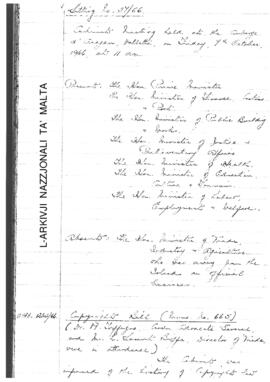 Sitting No. 37/66
Cabinet Meeting held at the Auberge
d'Aragon Valletta, on Friday, 7th October,
1966 at 11 am
Present: The Hon. Prime Minister
The Hon. Minister of Finance, Customs
& Port.
The Hon. Minister of Public Building
& Works.
The Hon. Minister of Justice &
Parliamentary Affairs
The Hon. Minister of Health.
The Hon. Minister of Education,
Culture & Tourism.
The Hon. Minister of Labour,
Employment & Welfare.
Absent: The Hon. Minister of Trade,
Industry & Agriculture
who was away from the
Island on official
business.
L-ARKIVJI NAZZJONALI TA' MALTA
Copyright Bill (Memo No. 665)
Crown Advocate General,
and Mr. Director of Trade,
were in attendance)
The Cabinet was
informed of the history of Copyright Law